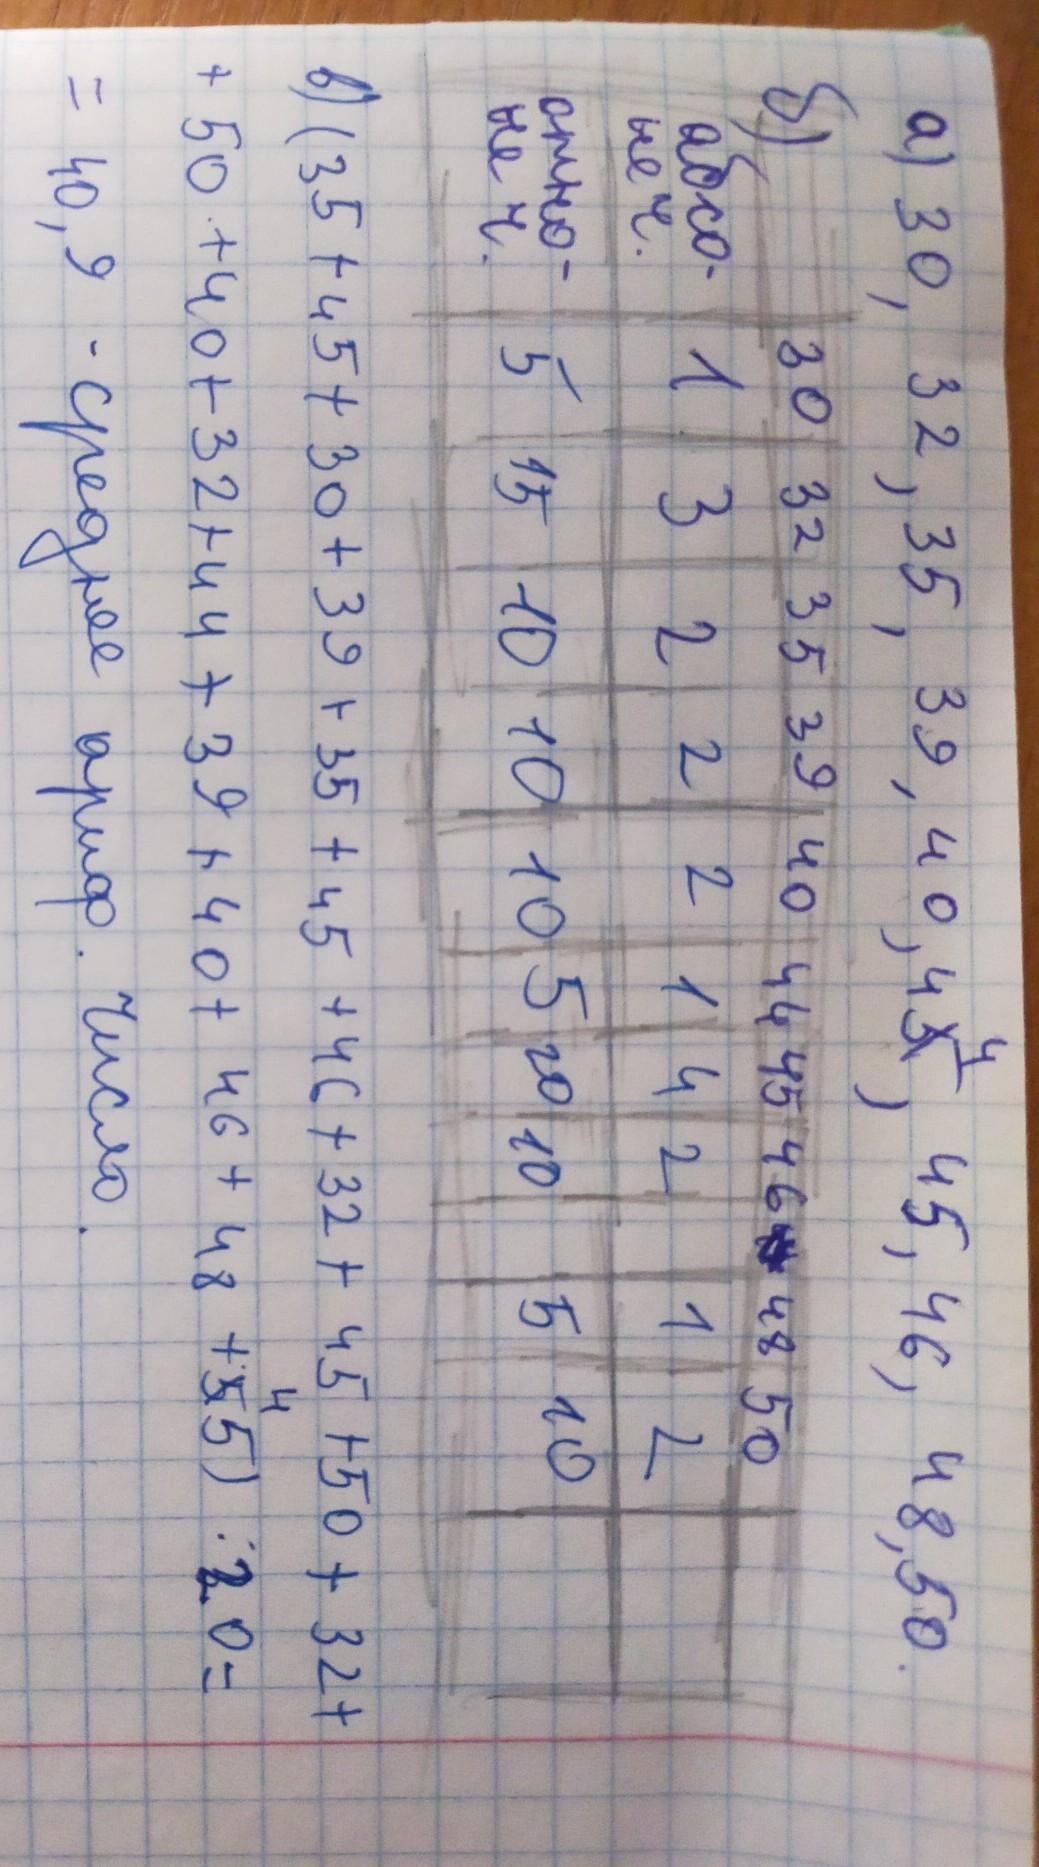 а) 30, 32, 35, 39, 40, 44, 45, 46, 48, 50.
б) 30 32 35 39 40 44 45 46 48 50
абсо- 1 3 2 2 2 1 4 2 1 2
не ч.
отно- 5 15 10 10 10 5 20 10 5 10
не ч.
в) (35 + 45 + 30 + 39 + 35 + 45 + 46 + 32 + 45 + 50 + 32 +
+ 50 + 40 + 32 + 44 + 39 + 40 + 46 + 48 + 45) : 20 =
= 40,9 - среднее ариф. число.